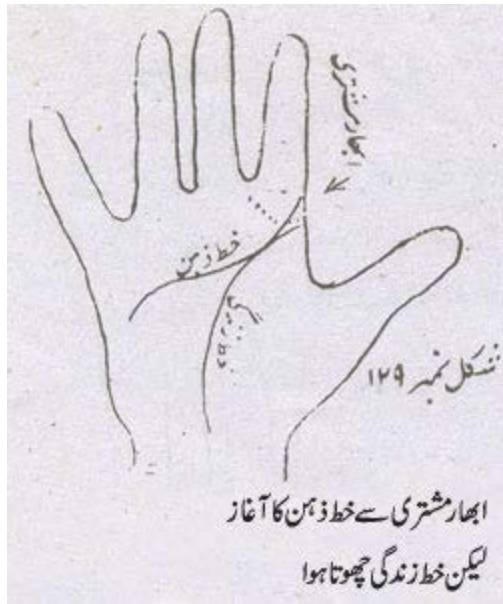 ابھار مشتری
خط ذہن
خط زندگی
شکل نمبر ۱۲۹
ابھار مشتری سے خط ذہن کا آغاز
لیکن خط زندگی چھوتا ہوا